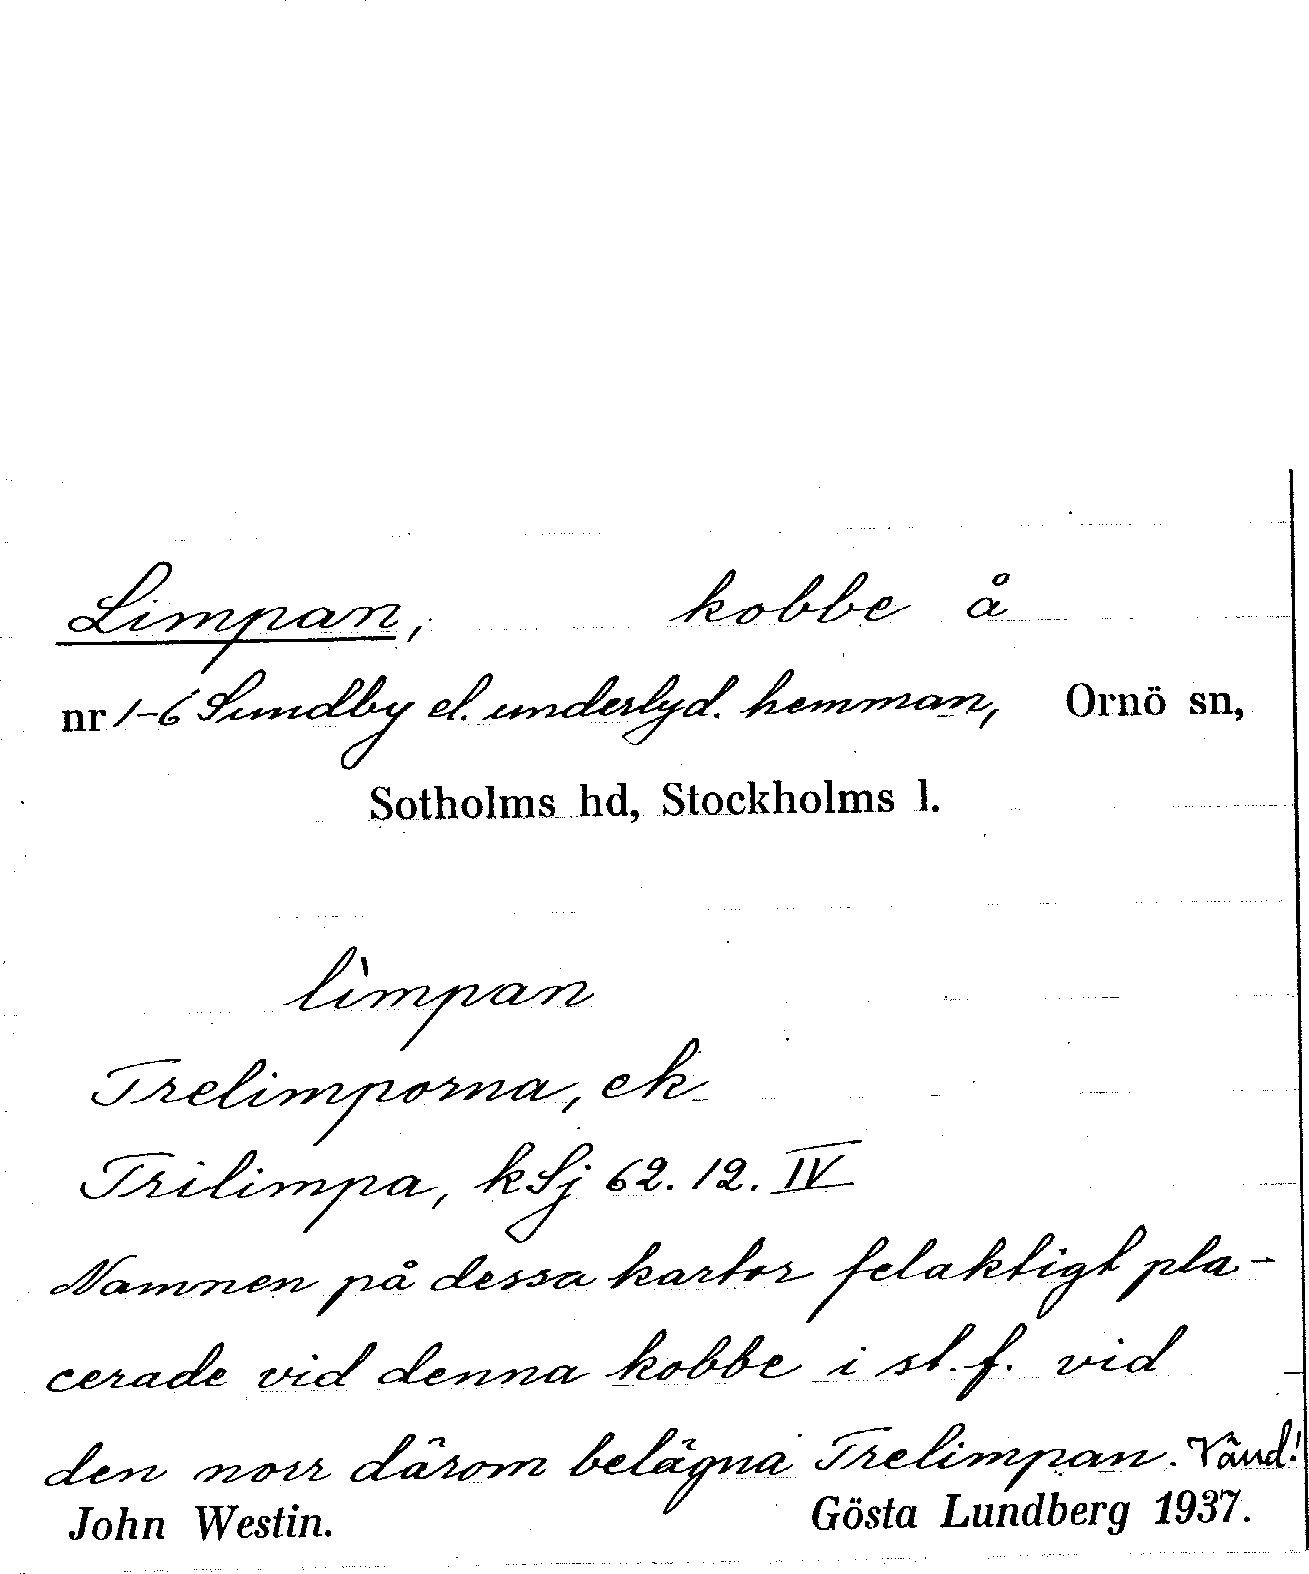 Limpan, kobbe å
nr 1-6 Sundby el. underlyd. hemman, Ornö sn,
Sotholms hd, Stockholms l.
lìmpan
Trelimporna, ek
Trilimpa, kSj 62. 12. IV
Namnen på dessa kartor felaktigt pla-
cerade vid denna kobbe i st. f. vid
den norr därom belägna Trelimpan. Vänd!
John Westin. Gösta Lundberg 1937.